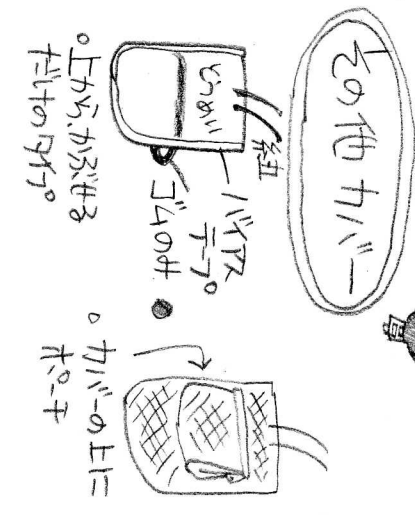 その他カバー
とうめい
紐
バイアス
テープ
ゴム
○上から、かぶせる
だけのタイプ
○カバーの上に
ポーチ